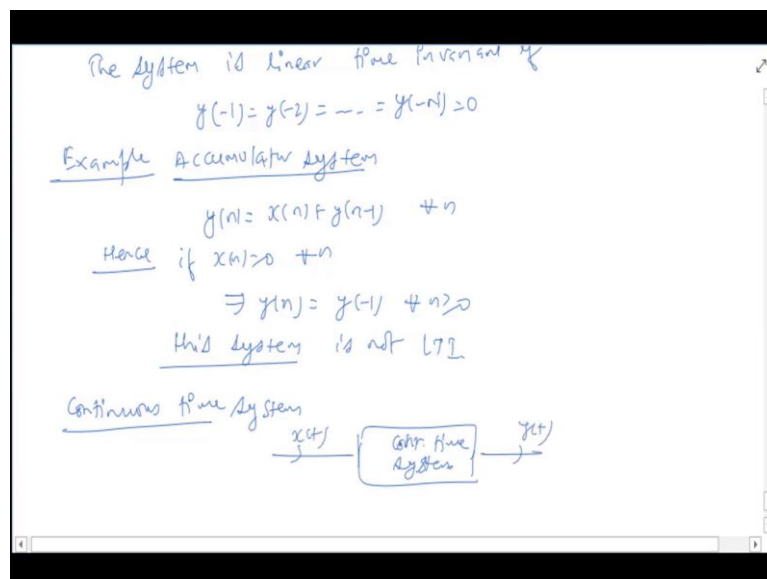 The system is linear time invariant if
y(-1) = y(-2) = --- = y(-N) = 0
Example Accumulator system
y(n) = x(n) + y(n-1) ∀ n
Hence if x(n) = 0 ∀ n
⇒ y(n) = y(-1) ∀ n ≥ 0
this system is not LTI
Continuous time system
x(t) y(t)
Cont. time
system